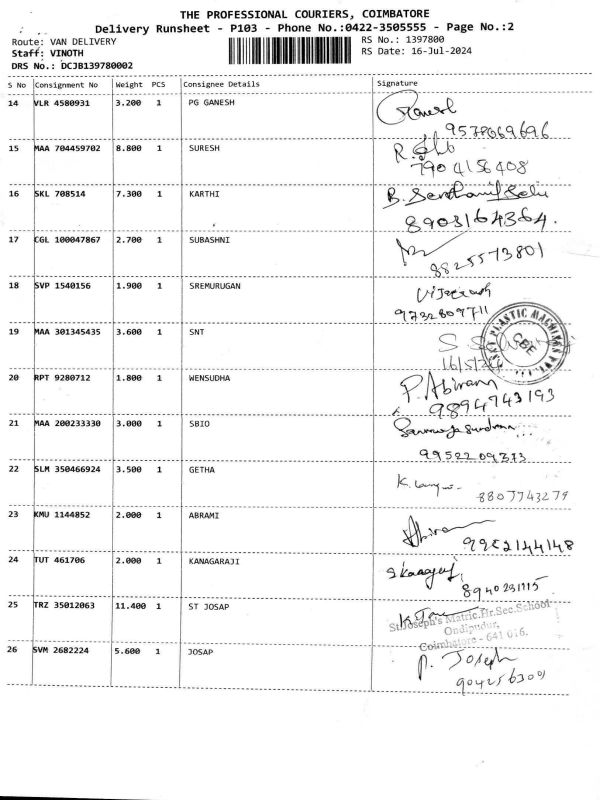 THE PROFESSIONAL COURIERS, COIMBATORE
Delivery Runsheet - P103 - Phone No.:0422-3505555 - Page No.:2
Route: VAN DELIVERY RS No.: 1397800
Staff: VINOTH RS Date: 16-Jul-2024
DRS No.: DCJB139780002
S No Consignment No Weight PCS Consignee Details Signature
14 VLR 4580931 3.200 1 PG GANESH
9578069696
15 MAA 704459702 8.800 1 SURESH
7904156408
16 SKL 708514 7.300 1 KARTHI
8903164364.
17 CGL 100047867 2.700 1 SUBASHNI
8825573801
18 SVP 1540156 1.900 1 SREMURUGAN
9732809711
19 MAA 301345435 3.600 1 SNT
PLASTIC MACHINGS PVT.
CBE
20 RPT 9280712 1.800 1 WENSUDHA
P. Abirami
9894743193
21 MAA 200233330 3.000 1 SBIO
9952209373
22 SLM 350466924 3.500 1 GETHA
8807743279
23 KMU 1144852 2.000 1 ABRAMI
9952144148
24 TUT 461706 2.000 1 KANAGARAJI
8940231115
25 TRZ 35012063 11.400 1 ST JOSAP
St.Joseph's Matric.Hr.Sec.School
Ondipudur,
Coimbatore - 641 016.
26 SVM 2682224 5.600 1 JOSAP
P. Joseph
9042563001